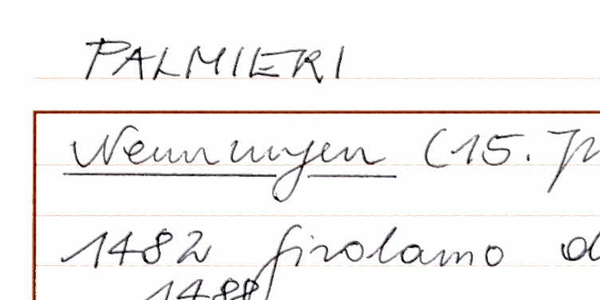 PALMIERI
Nennungen (15. J
1482 Girolamo d
1488